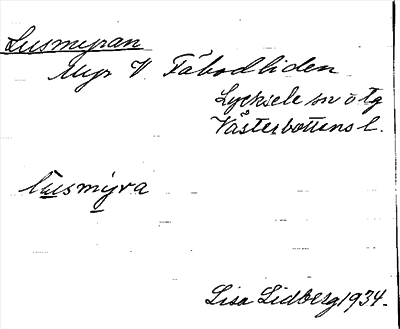 Lusmyran
Myr V. Fäbodliden
Lycksele sn ö tg
Västerbottens l.
lusmýra
Lisa Lidberg 1934.